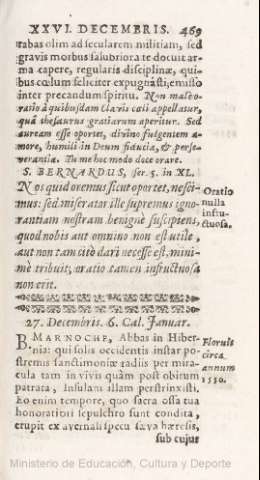 XXVI. DECEMBRIS. 469
rabas olim ad secularem militiam, sed
gravis morbus salubriora te docuit ar-
ma capere, regularis disciplinæ, qui-
bus cœlum feliciter expugnasti; emisso
inter precandum spiritu. Non male o-
ratio à quibusdam clavis cæli appellatur,
quâ thesaurus gratiarum aperitur. Sed
auream esse oportet, divino fulgentem a-
more, humili in Deum fiducia, & perse-
verantia. Tu me hoc modo doce orare.
S. BERNARDUS, ser. 5. in XL.
Nos quid oremus sicut oportet, nesci-
mus: sed miserator ille supremus igno-
rantiam nostram benignè suscipiens,
quod nobis aut omnino non est utile,
aut non tam citò dari necesse est, mini-
mè tribuit, oratio tamen infructuosa
non erit.
Oratio
nulla
infru-
ctuosa.
27. Decembris. 6. Cal. Januar.
B. MARNOCHE, Abbas in Hiber-
nia: qui solis occidentis instar po-
stremis sanctimoniæ radiis per mira-
cula tam in vivis quàm post obitum
patrata, Insulam illam perstrinxisti.
Eo enim tempore, quo sacra ossa tua
honoratiori sepulchro sunt condita,
erupit ex avernali specu sæva hæresis,
sub cujus
Floruit
circa
annum
1530.
Ministerio de Educación, Cultura y Deporte